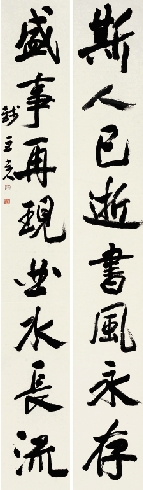 斯人已逝書風永存
盛事再現曲水長流